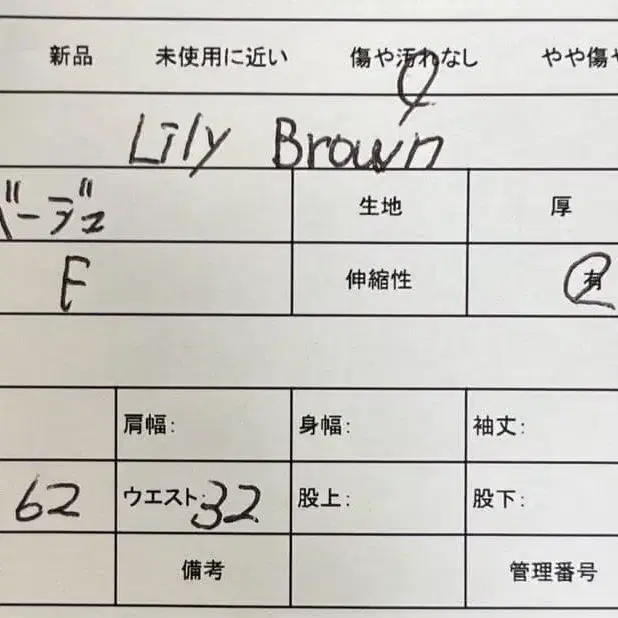 新品 未使用に近い 傷や汚れなし やや傷や
Lily Brown
ベージュ 生地 厚
F 伸縮性 有
肩幅: 身幅: 袖丈:
62 ウエスト: 32 股上: 股下:
備考 管理番号